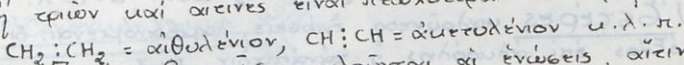 καὶ αἵτινες εἶναι
CH₂ : CH₂ = αἰθυλένιον, CH ⋮ CH = ἀκετυλένιον κ.λ.π.
αἱ ἑνώσεις